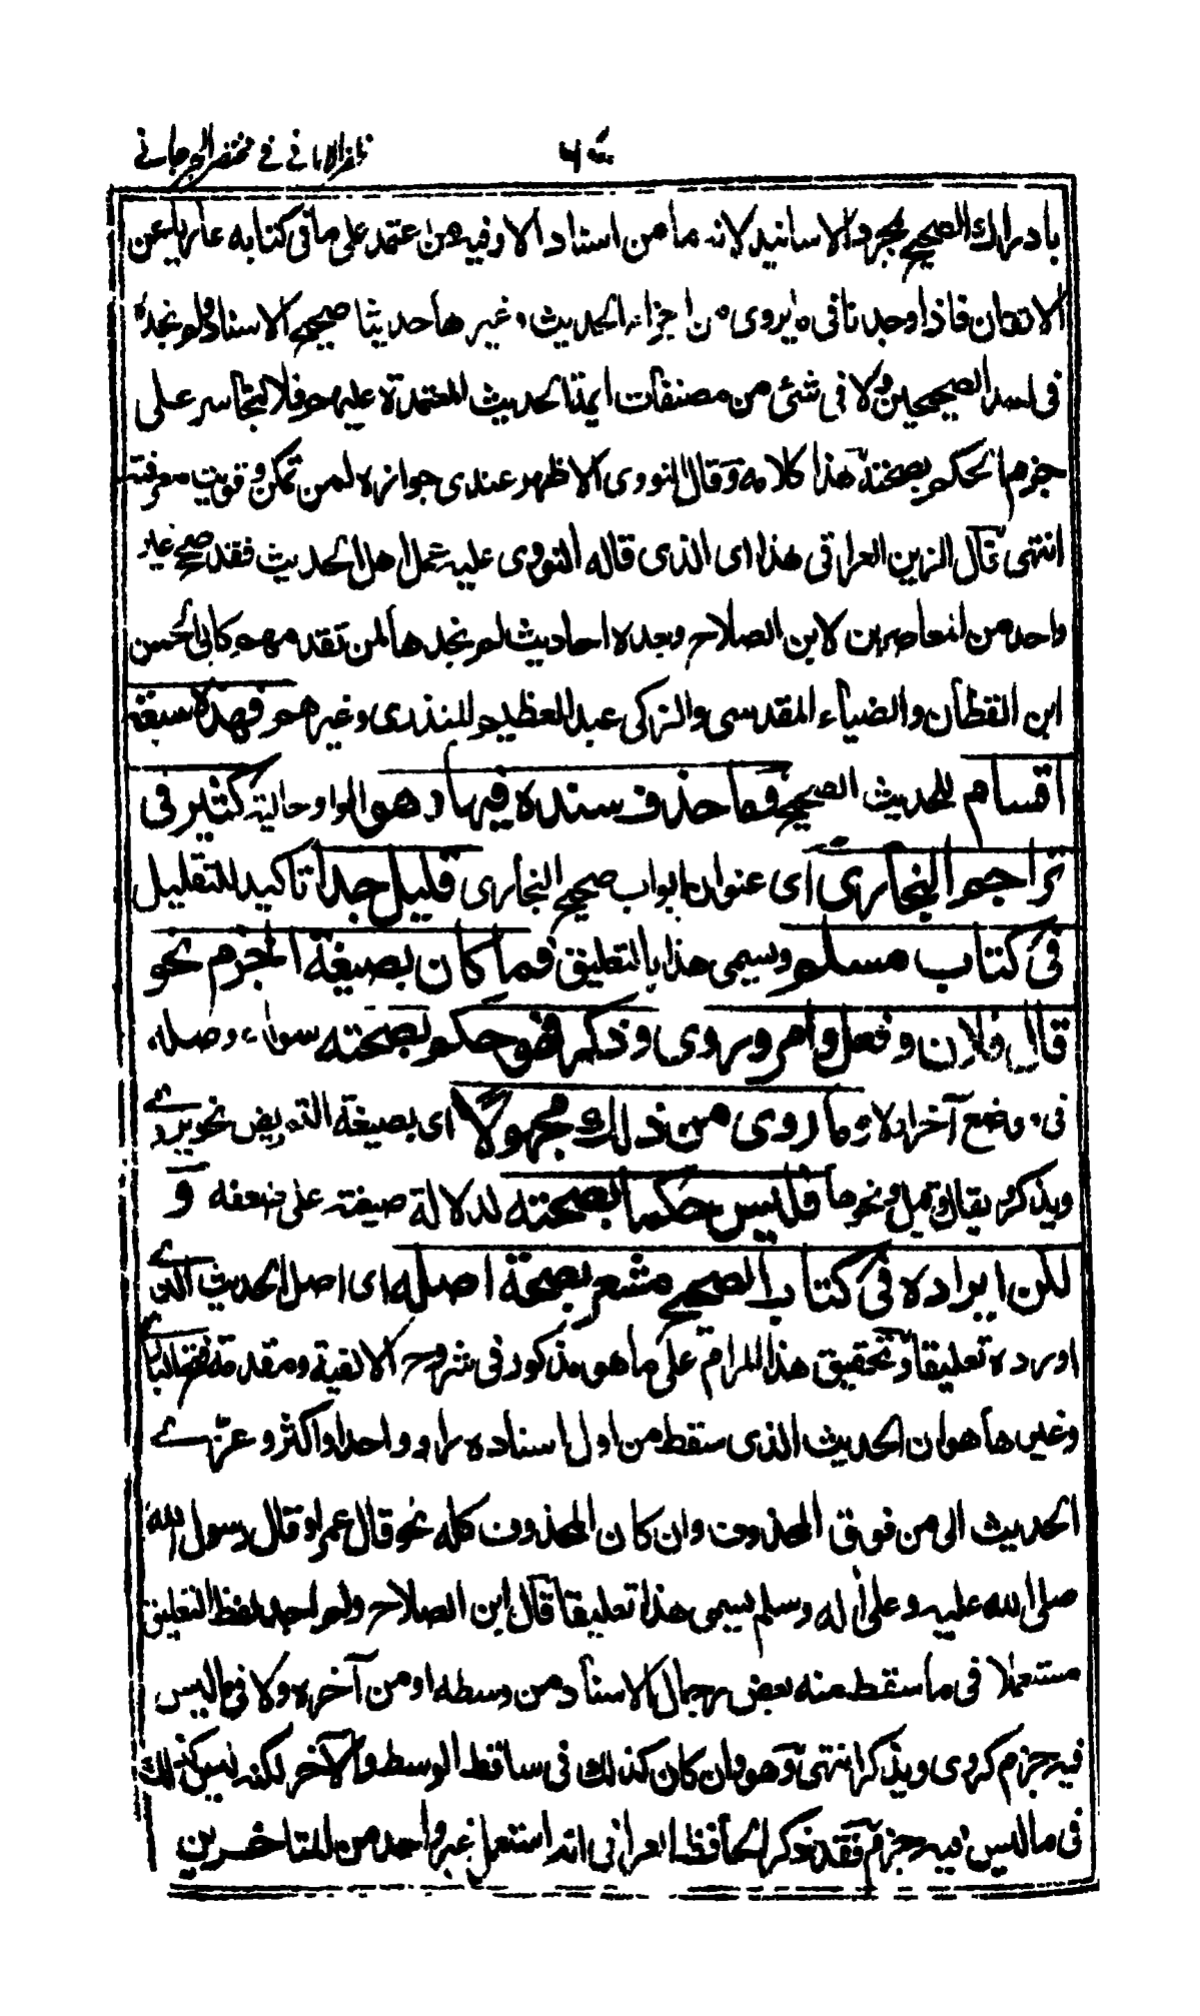 ظفر الامانى فى مختصر الجرجانى
بادراك الصحيح بمجرد الاسانيد لانه ما من اسناد الا وفيه من اعتمد على ما فى كتابه عاريا عن
الاتقان فاذا وجدنا فى ما يروى من اجزاء الحديث وغيرها حديثا صحيح الاسناد ولم نجده
فى احد الصحيحين ولا فى شئ من مصنفات ائمة الحديث المعتمدة عليهم فلا نتجاسر على
جزم الحكم بصحته هذا كلامه وقال النووى الاظهر عندى جوازه لمن تمكن وقويت معرفته
انتهى قال الزين العراقى هذا اى الذى قاله النووى عليه عمل اهل الحديث فقد صحح غير
واحد من المعاصرين لابن الصلاح وبعده احاديث لم نجدها لمن تقدمهم كابى الحسن
ابن القطان والضياء المقدسى والزكى عبد العظيم المنذرى وغيرهم فهذه سبعة
اقسام للحديث الصحيح فما حذف سنده فيها وهو الواو حالية كثير فى
تراجم البخارى اى عنوان ابواب صحيح البخارى قليل جدا تاكيد للتقليل
فى كتاب مسلم ويسمى هذا بالتعليق فما كان بصيغة الجزم نحو
قال فلان وفعل وامر وروى وذكر فهو حكم بصحته سواء وصله
فى موضع آخر اولا وما روى من ذلك مجهولا اى بصيغة التمريض نحو يروى
ويذكر ويقال وقيل ونحوها فليس حكما بصحته لدلالة صيغته على ضعفه و
لكن ايراده فى كتاب الصحيح مشعر بصحة اصله اى اصل الحديث الذى
اورده تعليقا وتحقيق هذا المرام على ما هو مذكور فى شروح الالفية ومقدمة فتح البارى
وغيرها هو ان الحديث الذى سقط من اول اسناده راو واحد او اكثر وعزى
الحديث الى من فوق المحذوف وان كان المحذوف كله نحو قال عمر او قال رسول الله
صلى الله عليه وعلى آله وسلم يسمى هذا تعليقا قال ابن الصلاح ولم اجد لفظ التعليق
مستعملا فى ما سقط منه بعض رجال الاسناد من وسطه او من آخره ولا فى ما ليس
فيه جزم كروى ويذكر انتهى وهو وان كان كذلك فى ساقط الوسط والآخر لكنه ليس كذلك
فى ما ليس فيه جزم فقد ذكر الحافظ العراقى انه استعمل غير واحد من المتاخرين